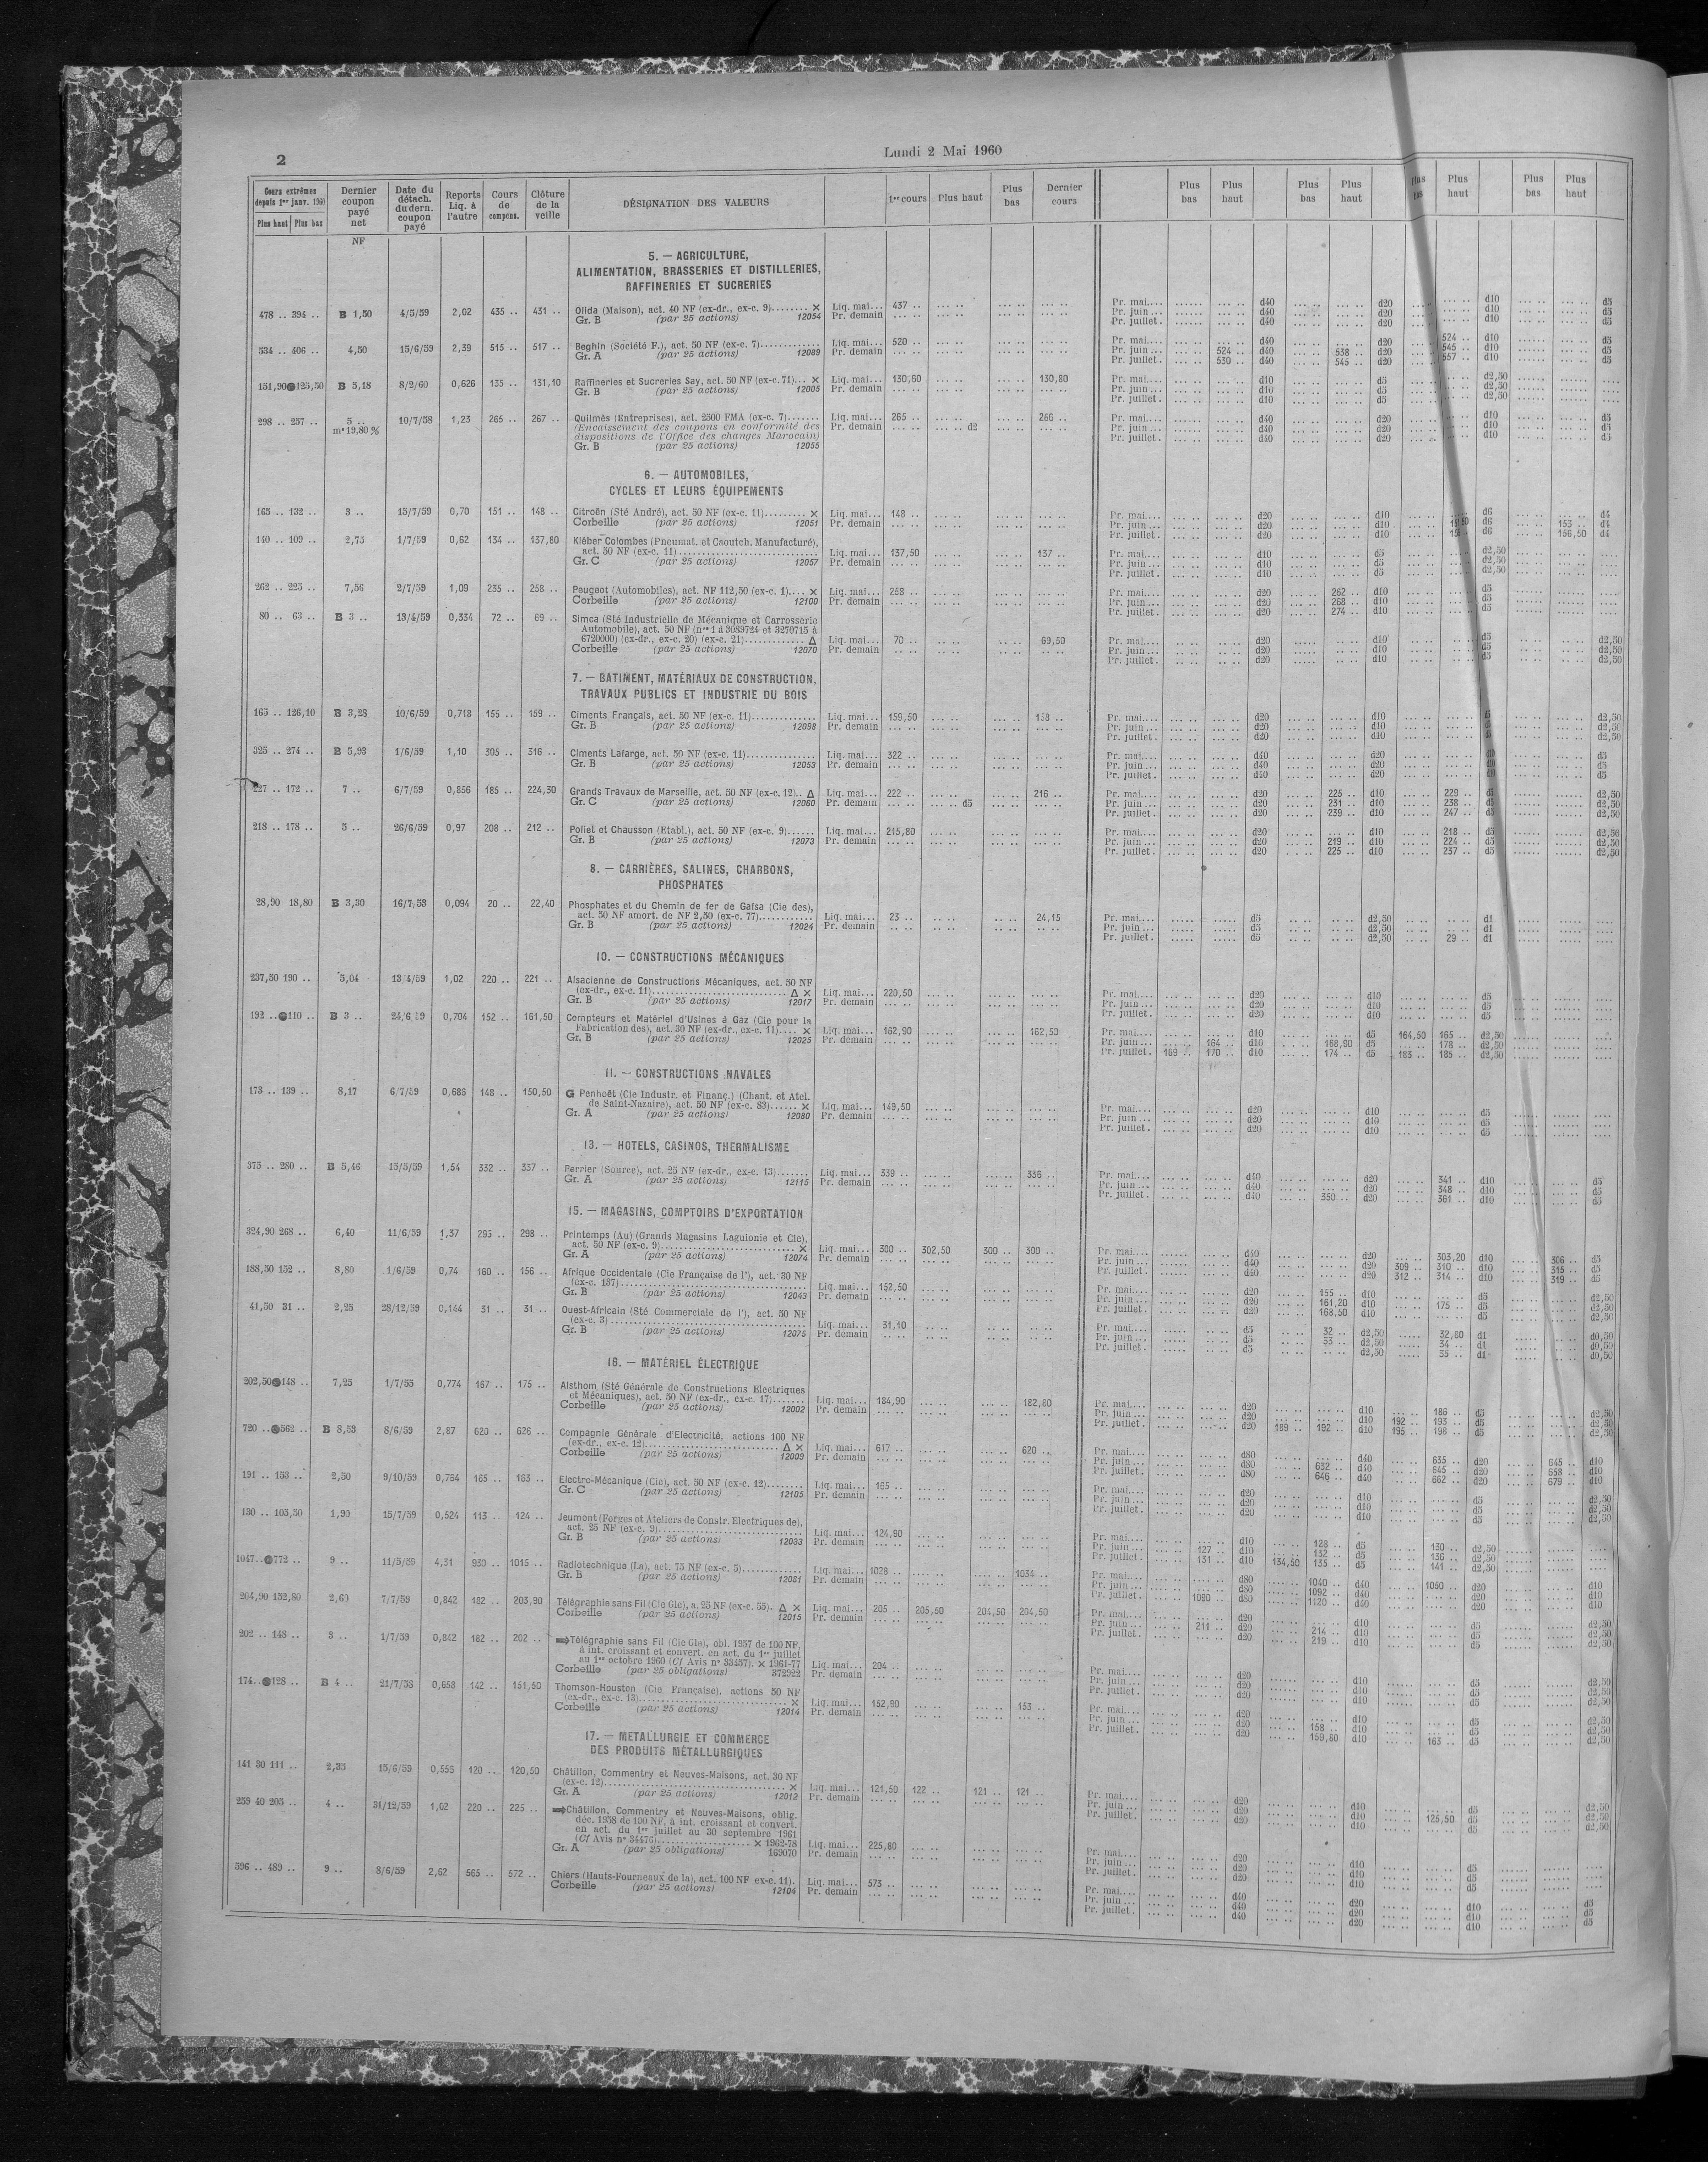 2
Lundi 2 Mai 1960
Cours extrêmes depuis 1er janv. 1960 Plus haut Plus bas | Dernier coupon payé net | Date du détach. du dern. coupon payé | Reports Liq. à l'autre | Cours de compens. | Clôture de la veille | DÉSIGNATION DES VALEURS | 1er cours | Plus haut | Plus bas | Dernier cours | Plus bas | Plus haut | Plus bas | Plus haut | Plus bas | Plus haut | Plus bas | Plus haut
NF
5. — AGRICULTURE,
ALIMENTATION, BRASSERIES ET DISTILLERIES,
RAFFINERIES ET SUCRERIES
478 .. 394 .. B 1,50 4/5/59 2,02 435 .. 431 .. Olida (Maison), act. 40 NF (ex-dr., ex-c. 9)........ × Liq. mai... 437 .. Pr. mai.... d40 d20 d10 d5
Gr. B (par 25 actions) 12054 Pr. demain Pr. juin ... d40 d20 d10 d5
Pr. juillet. d40 d20 d10 d5
534 .. 406 .. 4,50 15/6/59 2,39 515 .. 517 .. Beghin (Société F.), act. 50 NF (ex-c. 7)............. Liq. mai... 520 .. Pr. mai.... d40 d20 524 .. d10 d5
Gr. A (par 25 actions) 12089 Pr. demain Pr. juin ... 524 .. d40 538 .. d20 545 .. d10 d5
Pr. juillet. 530 .. d40 545 .. d20 557 .. d10 d5
151,90 125,50 B 5,18 8/2/60 0,626 135 .. 131,10 Raffineries et Sucreries Say, act. 50 NF (ex-c. 71)... × Liq. mai... 130,60 130,80 Pr. mai.... d10 d5 d2,50
Gr. B (par 25 actions) 12005 Pr. demain Pr. juin ... d10 d5 d2,50
Pr. juillet. d10 d5 d2,50
298 .. 257 .. 5 .. 10/7/58 1,23 265 .. 267 .. Quilmès (Entreprises), act. 2500 FMA (ex-c. 7)....... Liq. mai... 265 .. 266 .. Pr. mai.... d40 d20 d10 d5
m• 19,80 % (Encaissement des coupons en conformité des Pr. demain d2 Pr. juin ... d40 d20 d10 d5
dispositions de l'Office des changes Marocain) Pr. juillet. d40 d20 d10 d5
Gr. B (par 25 actions) 12055
6. — AUTOMOBILES,
CYCLES ET LEURS ÉQUIPEMENTS
165 .. 132 .. 3 .. 15/7/59 0,70 151 .. 148 .. Citroën (Sté André), act. 50 NF (ex-c. 11)......... × Liq. mai... 148 .. Pr. mai.... d20 d10 d6 d4
Corbeille (par 25 actions) 12051 Pr. demain Pr. juin ... d20 d10 d6 153 .. d4
Pr. juillet. d20 d10 d6 156,50 d4
140 .. 109 .. 2,75 1/7/59 0,62 134 .. 137,80 Kléber Colombes (Pneumat. et Caoutch. Manufacturé),
act. 50 NF (ex-c. 11)................................ Liq. mai... 137,50 137 .. Pr. mai.... d10 d5 d2,50
Gr. C (par 25 actions) 12057 Pr. demain Pr. juin ... d10 d5 d2,50
Pr. juillet. d10 d5 d2,50
262 .. 225 .. 7,56 2/7/59 1,09 235 .. 258 .. Peugeot (Automobiles), act. NF 112,50 (ex-c. 1).... × Liq. mai... 258 .. Pr. mai.... d20 262 .. d10 d5
Corbeille (par 25 actions) 12100 Pr. demain Pr. juin ... d20 268 .. d10 d5
Pr. juillet. d20 274 .. d10 d5
80 .. 63 .. B 3 .. 13/4/59 0,334 72 .. 69 .. Simca (Sté Industrielle de Mécanique et Carrosserie
Automobile), act. 50 NF (nos 1 à 3089724 et 3270715 à
6720000) (ex-dr., ex-c. 20) (ex-c. 21)............. Δ Liq. mai... 70 .. 69,50 Pr. mai.... d20 d10 d5 d2,50
Corbeille (par 25 actions) 12070 Pr. demain Pr. juin ... d20 d10 d5 d2,50
Pr. juillet. d20 d10 d5 d2,50
7. — BATIMENT, MATÉRIAUX DE CONSTRUCTION,
TRAVAUX PUBLICS ET INDUSTRIE DU BOIS
165 .. 126,10 B 3,28 10/6/59 0,718 155 .. 159 .. Ciments Français, act. 50 NF (ex-c. 11).............. Liq. mai... 159,50 158 .. Pr. mai.... d20 d10 d2,50
Gr. B (par 25 actions) 12098 Pr. demain Pr. juin ... d20 d10 d2,50
Pr. juillet. d20 d10 d2,50
325 .. 274 .. B 5,93 1/6/59 1,10 305 .. 316 .. Ciments Lafarge, act. 50 NF (ex-c. 11)............... Liq. mai... 322 .. Pr. mai.... d40 d20 d10 d5
Gr. B (par 25 actions) 12053 Pr. demain Pr. juin ... d40 d20 d10 d5
Pr. juillet. d40 d20 d10 d5
227 .. 172 .. 7 .. 6/7/59 0,856 185 .. 224,30 Grands Travaux de Marseille, act. 50 NF (ex-c. 12).. Δ Liq. mai... 222 .. 216 .. Pr. mai.... d20 225 .. d10 229 .. d5 d2,50
Gr. C (par 25 actions) 12060 Pr. demain d5 Pr. juin ... d20 231 .. d10 238 .. d5 d2,50
Pr. juillet. d20 239 .. d10 247 .. d5 d2,50
218 .. 178 .. 5 .. 26/6/59 0,97 208 .. 212 .. Poliet et Chausson (Etabl.), act. 50 NF (ex-c. 9)...... Liq. mai... 215,80 Pr. mai.... d20 d10 218 .. d5 d2,50
Gr. B (par 25 actions) 12073 Pr. demain Pr. juin ... d20 219 .. d10 224 .. d5 d2,50
Pr. juillet. d20 225 .. d10 237 .. d5 d2,50
8. — CARRIÈRES, SALINES, CHARBONS,
PHOSPHATES
28,90 18,80 B 3,30 16/7/53 0,094 20 .. 22,40 Phosphates et du Chemin de fer de Gafsa (Cie des),
act. 50 NF amort. de NF 2,50 (ex-c. 77)............ Liq. mai... 23 .. 24,15 Pr. mai.... d5 d2,50 d1
Gr. B (par 25 actions) 12024 Pr. demain Pr. juin ... d5 d2,50 d1
Pr. juillet. d5 d2,50 29 .. d1
10. — CONSTRUCTIONS MÉCANIQUES
237,50 190 .. 5,04 13/4/59 1,02 220 .. 221 .. Alsacienne de Constructions Mécaniques, act. 50 NF
(ex-dr., ex-c. 11)............................... Δ × Liq. mai... 220,50 Pr. mai.... d20 d10 d5
Gr. B (par 25 actions) 12017 Pr. demain Pr. juin ... d20 d10 d5
Pr. juillet. d20 d10 d5
192 .. 110 .. B 3 .. 24/6/59 0,704 152 .. 161,50 Compteurs et Matériel d'Usines à Gaz (Cie pour la
Fabrication des), act. 30 NF (ex-dr., ex-c. 11).... × Liq. mai... 162,90 162,50 Pr. mai.... d10 d5 164,50 165 .. d2,50
Gr. B (par 25 actions) 12025 Pr. demain Pr. juin ... 164 .. d10 168,90 d5 178 .. d2,50
Pr. juillet. 169 .. 170 .. d10 174 .. d5 183 .. 185 .. d2,50
11. — CONSTRUCTIONS NAVALES
173 .. 139 .. 8,17 6/7/59 0,686 148 .. 150,50 G Penhoët (Cie Industr. et Financ.) (Chant. et Atel.
de Saint-Nazaire), act. 50 NF (ex-c. 83)...... × Liq. mai... 149,50 Pr. mai.... d20 d10 d5
Gr. A (par 25 actions) 12080 Pr. demain Pr. juin ... d20 d10 d5
Pr. juillet. d20 d10 d5
13. — HOTELS, CASINOS, THERMALISME
375 .. 280 .. B 5,46 15/5/59 1,54 332 .. 337 .. Perrier (Source), act. 25 NF (ex-dr., ex-c. 13)....... Liq. mai... 339 .. 336 .. Pr. mai.... d40 d20 341 .. d10 d5
Gr. A (par 25 actions) 12115 Pr. demain Pr. juin ... d40 d20 348 .. d10 d5
Pr. juillet. d40 350 .. d20 361 .. d10 d5
15. — MAGASINS, COMPTOIRS D'EXPORTATION
324,90 268 .. 6,40 11/6/59 1,37 295 .. 298 .. Printemps (Au) (Grands Magasins Laguionie et Cie),
act. 50 NF (ex-c. 9)............................... × Liq. mai... 300 .. 302,50 300 .. 300 .. Pr. mai.... d40 d20 303,20 d10 306 .. d5
Gr. A (par 25 actions) 12074 Pr. demain Pr. juin ... d40 d20 309 .. 310 .. d10 315 .. d5
Pr. juillet. d40 d20 312 .. 314 .. d10 319 .. d5
188,50 152 .. 8,80 1/6/59 0,74 160 .. 156 .. Afrique Occidentale (Cie Française de l'), act. 30 NF
(ex-c. 137)........................................ Liq. mai... 152,50 Pr. mai.... d20 155 .. d10 d5 d2,50
Gr. B (par 25 actions) 12043 Pr. demain Pr. juin ... d20 161,20 d10 175 .. d5 d2,50
Pr. juillet. d20 168,50 d10 d5 d2,50
41,50 31 .. 2,25 28/12/59 0,144 31 .. 31 .. Ouest-Africain (Sté Commerciale de l'), act. 50 NF
(ex-c. 3).......................................... Liq. mai... 31,10 Pr. mai.... d5 32 .. d2,50 32,80 d1 d0,50
Gr. B (par 25 actions) 12075 Pr. demain Pr. juin ... d5 33 .. d2,50 34 .. d1 d0,50
Pr. juillet. d5 d2,50 35 .. d1 d0,50
16. — MATÉRIEL ÉLECTRIQUE
202,50 148 .. 7,25 1/7/55 0,774 167 .. 175 .. Alsthom (Sté Générale de Constructions Electriques
et Mécaniques), act. 50 NF (ex-dr., ex-c. 17)....... Liq. mai... 184,90 182,80 Pr. mai.... d20 d10 186 .. d5 d2,50
Corbeille (par 25 actions) 12002 Pr. demain Pr. juin ... d20 d10 192 .. 193 .. d5 d2,50
Pr. juillet. d20 189 .. 192 .. d10 195 .. 198 .. d5 d2,50
720 .. 562 .. B 8,53 8/6/59 2,87 620 .. 626 .. Compagnie Générale d'Electricité, actions 100 NF
(ex-dr., ex-c. 12)............................... Δ × Liq. mai... 617 .. 620 .. Pr. mai.... d80 d40 635 .. d20 645 .. d10
Corbeille (par 25 actions) 12009 Pr. demain Pr. juin ... d80 632 .. d40 645 .. d20 658 .. d10
Pr. juillet. d80 646 .. d40 662 .. d20 679 .. d10
191 .. 153 .. 2,50 9/10/59 0,784 165 .. 163 .. Electro-Mécanique (Cie), act. 50 NF (ex-c. 12)........ Liq. mai... 165 .. Pr. mai.... d20 d10 d5 d2,50
Gr. C (par 25 actions) 12105 Pr. demain Pr. juin ... d20 d10 d5 d2,50
Pr. juillet. d20 d10 d5 d2,50
130 .. 103,50 1,90 15/7/59 0,524 113 .. 124 .. Jeumont (Forges et Ateliers de Constr. Electriques de),
act. 25 NF (ex-c. 9)................................ Liq. mai... 124,90 Pr. mai.... d10 128 .. d5 130 .. d2,50
Gr. B (par 25 actions) 12033 Pr. demain Pr. juin ... 127 .. d10 132 .. d5 136 .. d2,50
Pr. juillet. 131 .. d10 134,50 135 .. d5 141 .. d2,50
1047.. 772 .. 9 .. 11/5/59 4,31 930 .. 1015 .. Radiotechnique (La), act. 75 NF (ex-c. 5)............. Liq. mai... 1028 .. 1034 .. Pr. mai.... d80 1040 .. d40 1050 .. d20 d10
Gr. B (par 25 actions) 12081 Pr. demain Pr. juin ... d80 1092 .. d40 d20 d10
Pr. juillet. 1090 .. d80 1120 .. d40 d20 d10
204,90 152,80 2,60 7/7/59 0,842 182 .. 203,90 Télégraphie sans Fil (Cie Gle), a. 25 NF (ex-c. 35). Δ × Liq. mai... 205 .. 205,50 204,50 204,50 Pr. mai.... d20 d10 d5 d2,50
Corbeille (par 25 actions) 12015 Pr. demain Pr. juin ... 211 .. d20 214 .. d10 d5 d2,50
Pr. juillet. d20 219 .. d10 d5 d2,50
202 .. 148 .. 3 .. 1/7/59 0,842 182 .. 202 .. Télégraphie sans Fil (Cie Gle), obl. 1957 de 100 NF,
à int. croissant et convert. en act. du 1er juillet
au 1er octobre 1960 (Cf Avis n° 33457). × 1961-77 Liq. mai... 204 .. Pr. mai.... d20 d10 d5 d2,50
Corbeille (par 25 obligations) 372922 Pr. demain Pr. juin ... d20 d10 d5 d2,50
Pr. juillet. d20 d10 d5 d2,50
174.. 128 .. B 4 .. 21/7/58 0,658 142 .. 151,50 Thomson-Houston (Cie Française), actions 50 NF
(ex-dr., ex-c. 13)................................... × Liq. mai... 152,90 153 .. Pr. mai.... d20 d10 d5 d2,50
Corbeille (par 25 actions) 12014 Pr. demain Pr. juin ... d20 158 .. d10 d5 d2,50
Pr. juillet. d20 159,80 d10 163 .. d5 d2,50
17. — METALLURGIE ET COMMERCE
DES PRODUITS MÉTALLURGIQUES
141 30 111 .. 2,33 15/6/59 0,556 120 .. 120,50 Châtillon, Commentry et Neuves-Maisons, act. 30 NF
(ex-c. 12)........................................... × Liq. mai... 121,50 122 .. 121 .. 121 .. Pr. mai.... d20 d10 d5 d2,50
Gr. A (par 25 actions) 12012 Pr. demain Pr. juin ... d20 d10 125,50 d5 d2,50
Pr. juillet. d20 d10 d5 d2,50
259 40 205 .. 4 .. 31/12/59 1,02 220 .. 225 .. Châtillon, Commentry et Neuves-Maisons, oblig.
déc. 1958 de 100 NF, à int. croissant et convert.
en act. du 1er juillet au 30 septembre 1961
(Cf Avis n° 34476).................... × 1962-78 Liq. mai... 225,80 Pr. mai.... d20 d10 d5
Gr. A (par 25 obligations) 169070 Pr. demain Pr. juin ... d20 d10 d5
Pr. juillet. d20 d10 d5
596 .. 489 .. 9 .. 8/6/59 2,62 565 .. 572 .. Chiers (Hauts-Fourneaux de la), act. 100 NF ex-c. 11). Liq. mai... 573 .. Pr. mai.... d40 d20 d10 d5
Corbeille (par 25 actions) 12104 Pr. demain Pr. juin ... d40 d20 d10 d5
Pr. juillet. d40 d20 d10 d5